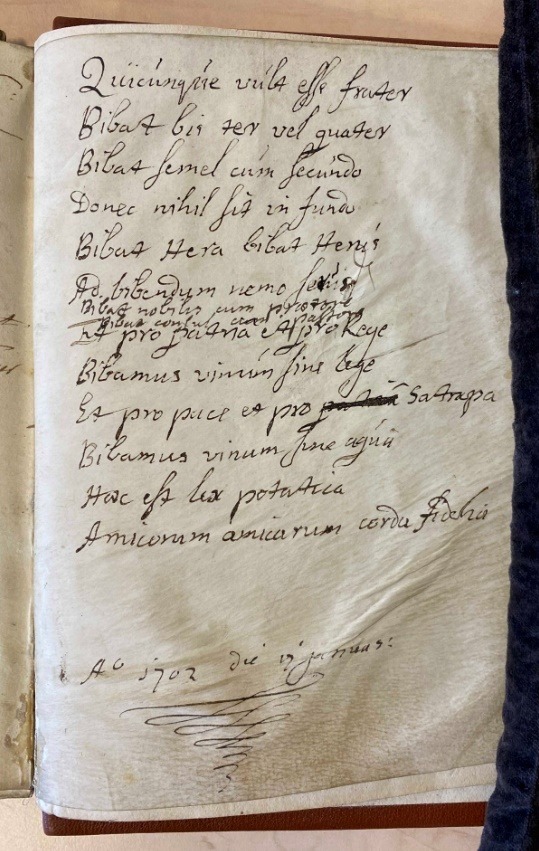 Quicunque vult esse frater
Bibat bis ter vel quater
Bibat semel cum secundo
Donec nihil sit in fundo
Bibat Hera bibat Herus
Ad bibendum nemo serus
Bibat nobilis cum praetore
Bibat consul cum pastore
Et pro patria et pro Rege
Bibamus vinum sine lege
Et pro pace et pro Satrapa
Bibamus vinum sine aqua
Haec est lex potatica
Amicorum amicarum corda fidelia
Aº 1702 die